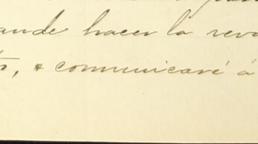 ande hacer la rev
to, & comunicaré á